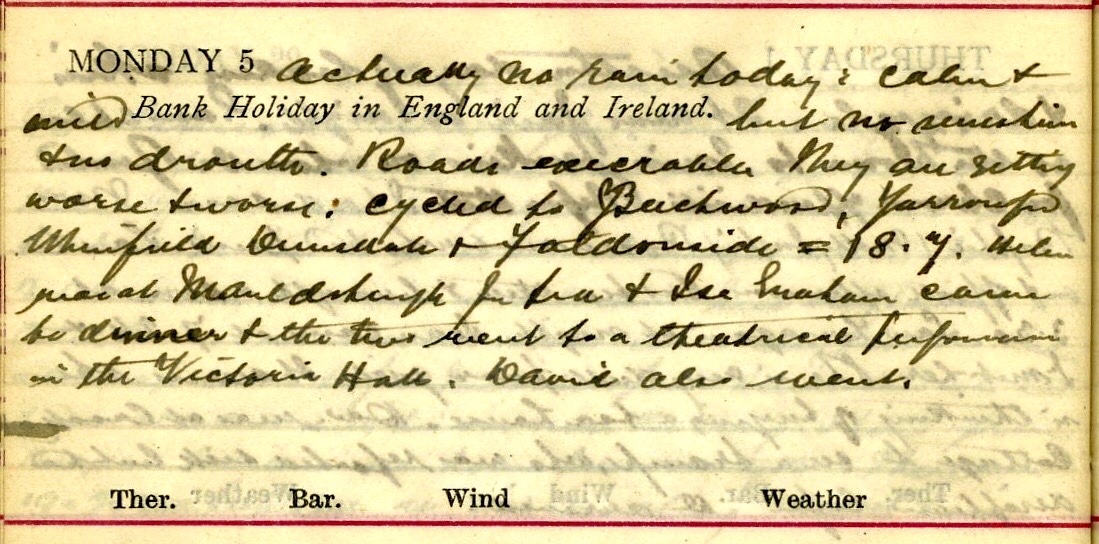 MONDAY 5 Actually no rain today: calm &
mild Bank Holiday in England and Ireland. but no sunshine
& no drouth. Roads execrable They are getting
worse & worse: cycled to Beechwood, Yarrowford
Whinfield Dunsdale & Faldonside = 18.7. Helen
was at Mauldsheugh for tea & Isa Graham came
to dinner & the two went to a theatrical performance
in the Victoria Hall. David also went.
Ther. Bar. Wind Weather